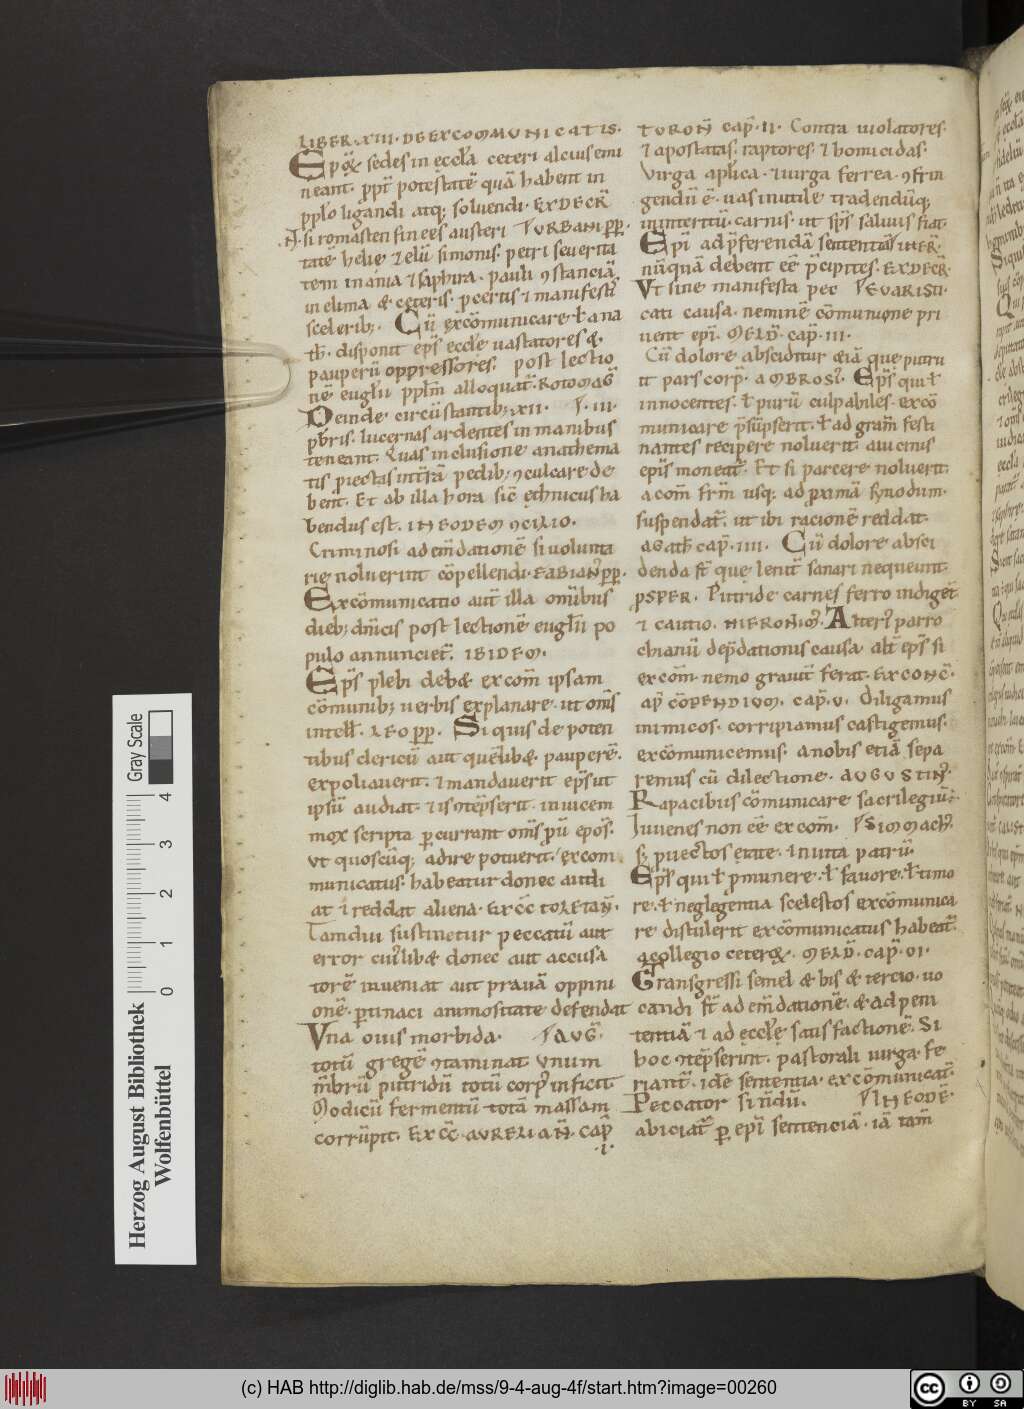 LIBER XIII DE EXCOMMUNICATIS.
Epoꝝ sedes in ęccl'a ceteri alcius emi
neant. ꝓpt̄ potestatē quā habent in
pplo ligandi atq; soluendi. EX DECR̄
N. si romasten finees austeri URBANI PP.
tatē helie ⁊ elisei simonis petri seuerita
tem in ania ⁊ saphira. pauli ꝯstanciā
in elima & ceteris. ꝓ certis ⁊ manifesti
sceleribꝫ. Cū excōmunicare ł ana
th̄. disponit ep̄s eccl'e uastatores &
pauperū oppressores. post lectio
nē eugl'ii ppl̄m alloquat̄. ROTOMAḠ
Deinde circūstantibꝫ. XII. III.
pb̄ris. lucernas ardentes in manibus
teneant. Quas in clusione anathema
tis ꝓiectas in tr̄ā pedibꝫ ꝯculcare de
bent. Et ab illa hora sic̄ ęthnicus ha
bendus est. IN EODEM ꝯCILIO.
Criminosi ad em̄dationē si volunta
rię noluerint cōpellendi. FABIAN' PP.
Excōmunicatio aut̄ illa omībus
diebꝫ dn̄icis post lectionē eugl'ii po
pulo annunciet̄. IBIDEM.
Ep̄s plebi debet excom̄ ipsam
cōmunibꝫ uerbis explanare. ut om̄s
intell̄. LEO PP. Siquis de poten
tibus clericū aut quēlib& pauperē.
expoliauerit. ⁊ mandauerit ep̄s ut
ipsū audiat. ⁊ is ꝯtēpserit. in uicem
mox scripta ꝑcurrant om̄s ꝓū epōs.
ut quoscūq; adire potuerit. excom
municatus habeatur donec audi
at ⁊ reddat aliena. EX CC̄ TOLETAN̄.
Tamdiu sustinetur peccatū aut
error cui'lib& donec aut accusa
torē inueniat aut prauā oppini
onē. ꝑtinaci animositate defendat
Vna ouis morbida. AUḠ.
totū gregē ꝯtaminat. Vnum
m̄brū putridū totū corp' inficit.
Modicū fermentū totā massam
corrūpit. EX CC̄. AURELIAN̄. CAP̄
.I.
TURON̄ CAP̄. II. Contra uiolatores.
⁊ apostatas. raptores. ⁊ homicidas.
Virga aplica. ⁊ uirga ferrea. ꝯfrin
gendū ē. uas inutile tradendūq;
in interitū. carnis. ut sp̄s saluus fiat.
Epī ad p̄ferendā sententiā IN ER̄.
nūquā debent eē p̄cipites. EX DECR̄.
Vt sine manifesta pec EVARISTI.
cati causa. neminē cōmunione pri
uent epī. MELD̄. CAP̄. III.
Cū dolore absciditur etiā que putru
it pars corp̄. AMBROSI'. Ep̄s qui ł
innocentes. ł purū culpabiles. excō
municare p̄sūpserit. ł ad gram̄ festi
nantes recipere noluerit. a uicinis
epīs moneat̄. Et si parcere noluerit.
a com̄ fr̄m usq; ad ꝓximā synodum.
suspendat̄. ut ibi racionē reddat.
AGATH̄ CAP̄. IIII. Cū dolore absci
denda st̄ que lenit̄ sanari nequeunt.
PSPER. Putride carnes ferro indigēt
⁊ cautio. HIERONIM'. Alteri' parro
chianū dep̄dationis causa. alt̄ ep̄s si
excom̄. nemo grauit̄ ferat. EX CONC̄.
AP' CŌPENDIUM. CAP̄. V. Diligamus
inimicos. corripiamus castigemus.
excōmunicemus. a nobis etiā sepa
remus cū dilectione. AUGUSTIN'.
Rapacibus cōmunicare sacrilegiū.
Iuuenes non eē excom̄. SIMMACH'.
sꝫ ꝓuectos etate. ⁊ nutu patrū.
Ep̄s qui ł ꝓ munere. ł fauore. ł timo
re. ł neglegentia scelestos excōmunica
re distulerit excōmunicatus habeat̄
a collegio ceteroꝝ. MELD̄. CAP̄. VI.
Transgressi semel & bis & tercio. uo
candi st̄ ad em̄dationē. & ad peni
tentiā ⁊ ad eccl'ę satisfactionē. Si
hoc ꝯtēpserint. pastorali uirga fe
riant̄. idē sententia. excōmunicat̄.
Peccator si n̄ dū. IN EODĒ.
abiciat̄ ꝑ epī sentenciā. iā tam̄
Gray Scale
4
3
2
1
0
Herzog August Bibliothek
Wolfenbüttel
(c) HAB http://diglib.hab.de/mss/9-4-aug-4f/start.htm?image=00260
cc BY SA